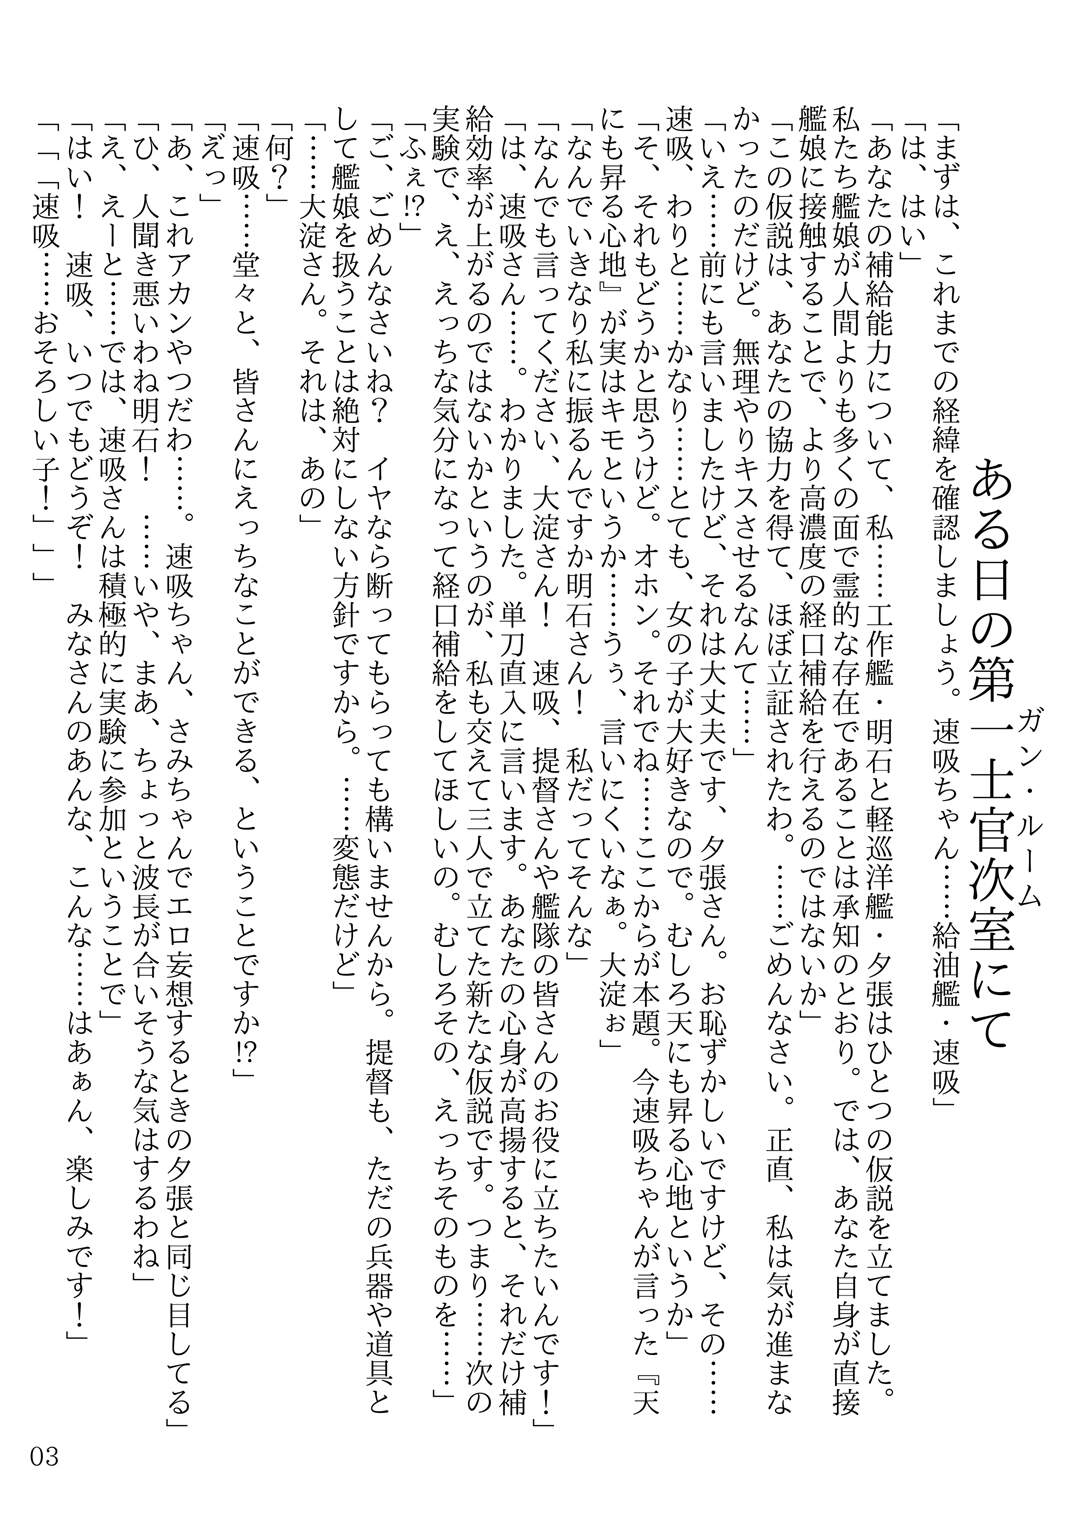 ある日の第一士官次室にて
ガン・ルーム
「まずは、これまでの経緯を確認しましょう。速吸ちゃん……給油艦・速吸」
「は、はい」
「あなたの補給能力について、私……工作艦・明石と軽巡洋艦・夕張はひとつの仮説を立てました。
私たち艦娘が人間よりも多くの面で霊的な存在であることは承知のとおり。では、あなた自身が直接
艦娘に接触することで、より高濃度の経口補給を行えるのではないか」
「この仮説は、あなたの協力を得て、ほぼ立証されたわ。……ごめんなさい。正直、私は気が進まな
かったのだけど。無理やりキスさせるなんて……」
「いえ……前にも言いましたけど、それは大丈夫です、夕張さん。お恥ずかしいですけど、その……
速吸、わりと……かなり……とても、女の子が大好きなので。むしろ天にも昇る心地というか」
「そ、それもどうかと思うけど。オホン。それでね……ここからが本題。今速吸ちゃんが言った『天
にも昇る心地』が実はキモというか……うぅ、言いにくいなぁ。大淀ぉ」
「なんでいきなり私に振るんですか明石さん！　私だってそんな」
「なんでも言ってください、大淀さん！　速吸、提督さんや艦隊の皆さんのお役に立ちたいんです！」
「は、速吸さん……。わかりました。単刀直入に言います。あなたの心身が高揚すると、それだけ補
給効率が上がるのではないかというのが、私も交えて三人で立てた新たな仮説です。つまり……次の
実験で、え、えっちな気分になって経口補給をしてほしいの。むしろその、えっちそのものを……」
「ふぇ!?」
「ご、ごめんなさいね？　イヤなら断ってもらっても構いませんから。提督も、ただの兵器や道具と
して艦娘を扱うことは絶対にしない方針ですから。……変態だけど」
「……大淀さん。それは、あの」
「何？」
「速吸……堂々と、皆さんにえっちなことができる、ということですか!?」
「えっ」
「あ、これアカンやつだわ……。速吸ちゃん、さみちゃんでエロ妄想するときの夕張と同じ目してる」
「ひ、人聞き悪いわね明石！　……いや、まあ、ちょっと波長が合いそうな気はするわね」
「え、えーと……では、速吸さんは積極的に実験に参加ということで」
「はい！　速吸、いつでもどうぞ！　みなさんのあんな、こんな……はぁぁん、楽しみです！」
「「「速吸……おそろしい子！」」」
03